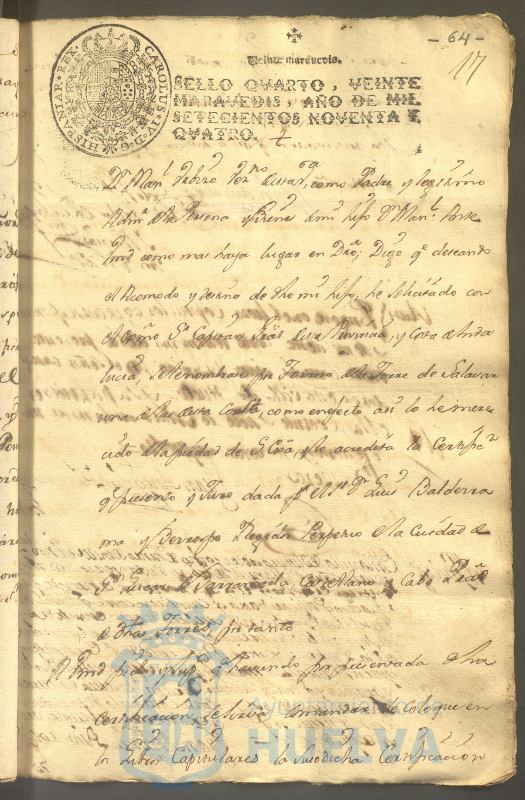 - 64 -
17
CAROLUS IV D. G. HISPANIAR. REX
Veinte maravedis.
SELLO QVARTO, VEINTE
MARAVEDIS, AÑO DE MIL
SETECIENTOS NOVENTA Y
QVATRO.
Dn Manl como Padre y legitimo
Admr de la Persona y Bienes de mi hijo Dn Manl
Vmd como mas haya lugar en Dro; Digo qe deseando
el Acomodo y destino de dho mi hijo, he solicitado con
el Exmo Sr Capitan Gral de esta Provincia, y Costa de Anda
lucia, se le nombrase por Torrero de la Torre de Salavar
una de las de esta Costa, como en efecto asi lo he mere
cido de la piedad de S. Exa, y lo acredita la Certificn
qe presento y Juro dada pr el Sr Dn Luis Balderra
ma y Berrospo Regidor Perpetuo de la Ciudad de
Sn Lucar de Barrameda y Cabo Rl
de dhas Torres, por tanto
A Vmd pido y supco qe haviendo por presentada dha
Certificacion, se sirva mandar se coloque en
los Libros Capitulares la susodicha Certificacion
Ayuntamiento de
HUELVA